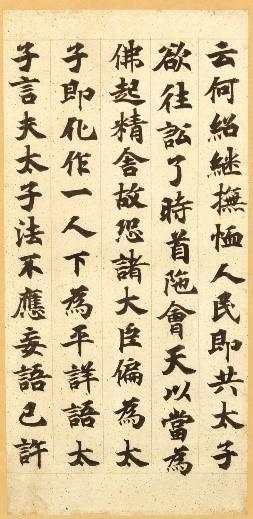 云何紹継撫恤人民即共太子
欲往訟了時首陁會天以當為
佛起精舎故恐諸大臣偏為太
子即化作一人下為平詳語太
子言夫太子法不應妄語已許